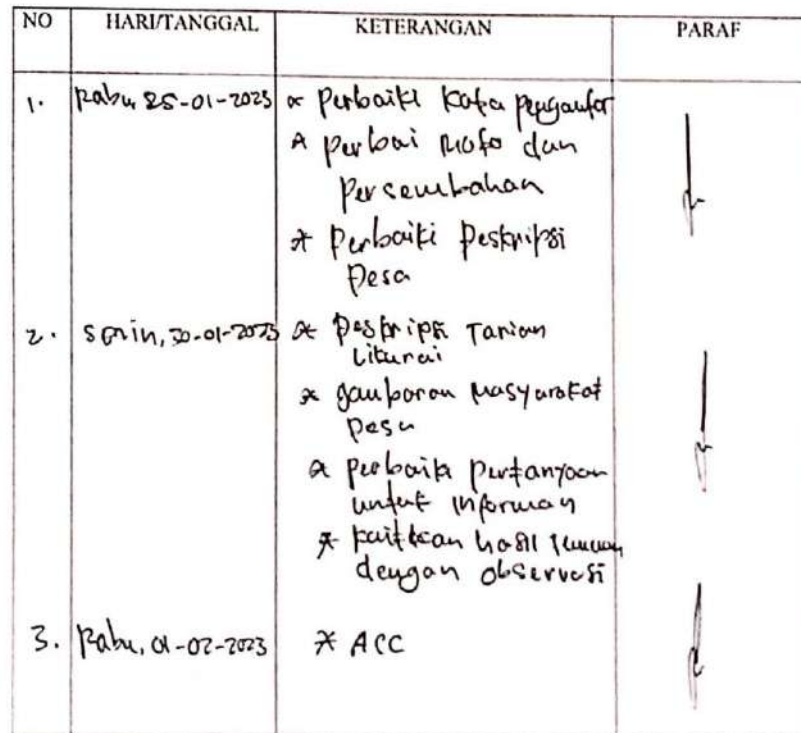 NO HARI/TANGGAL KETERANGAN PARAF
1. Rabu 25-01-2023 * Perbaiki Kata pengantar
* perbai Moto dan
Persembahan
* Perbaiki Deskripsi
Desa
2. Senin, 30-01-2023 * Deskripsi Tarian
Likurai
* gambaran Masyarakat
Desa
* perbaiki pertanyaan
untuk informan
* kaitkan hasil temuan
dengan observasi
3. Rabu, 01-02-2023 * ACC